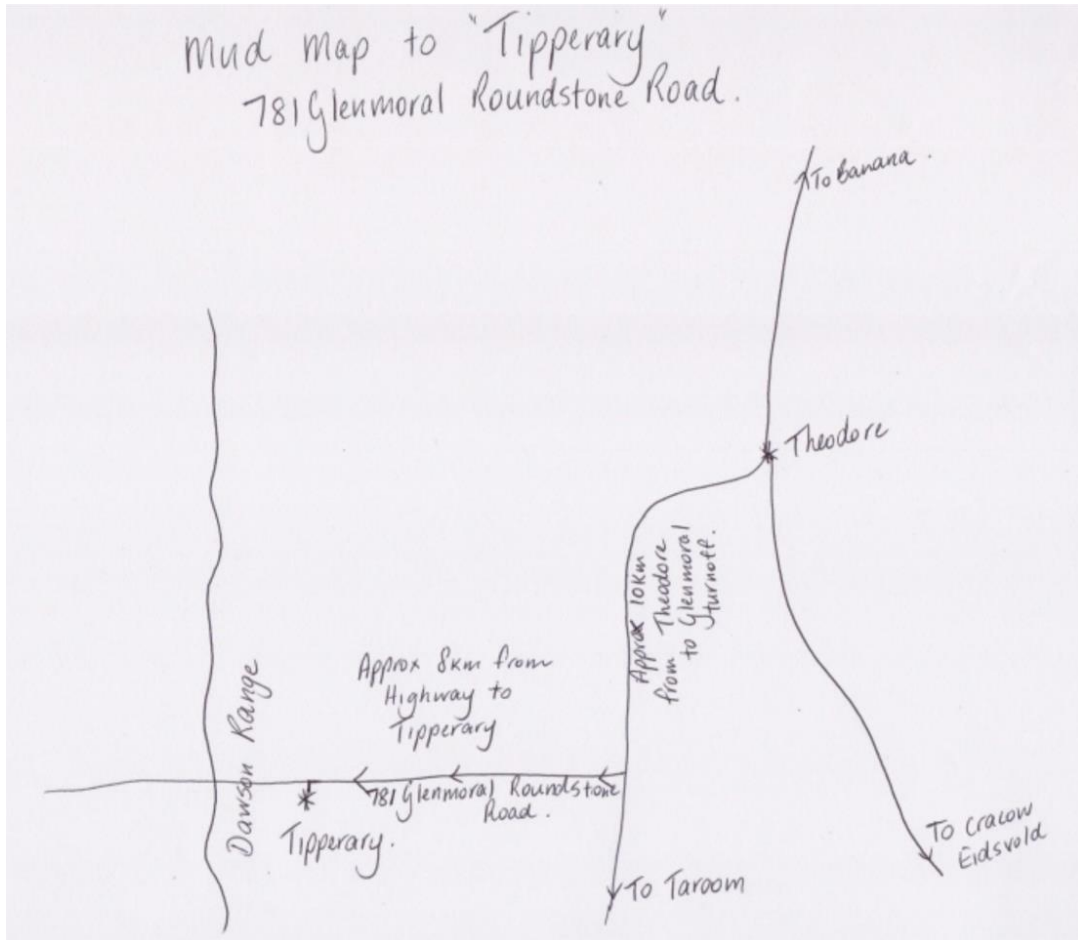 Mud Map to "Tipperary"
781 Glenmoral Roundstone Road.
To Banana.
Theodore
Approx 10km
from Theodore
to Glenmoral
turnoff.
Approx 8km from
Highway to
Tipperary
Dawson Range
781 Glenmoral Roundstone
Road.
Tipperary.
To Cracow
Eidsvold
To Taroom